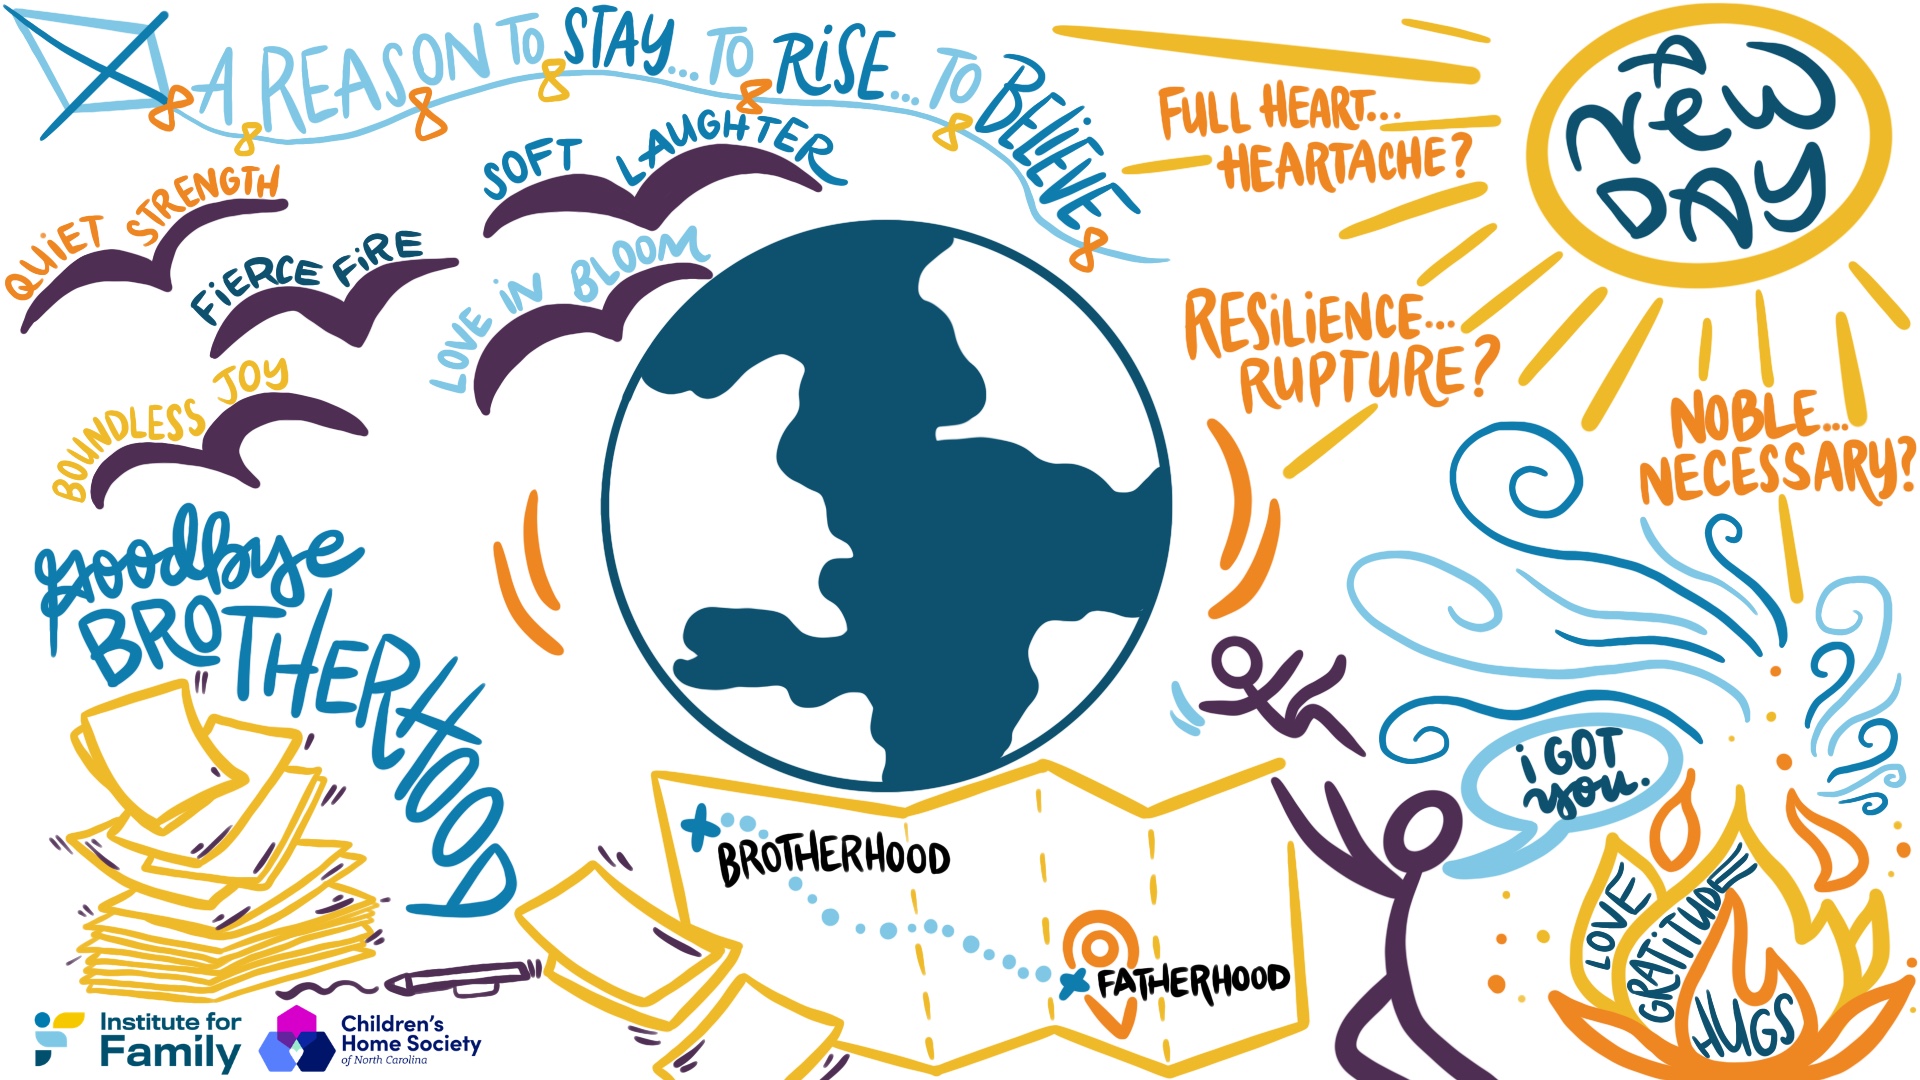 A REASON TO STAY... TO RISE... TO BELIEVE
QUIET STRENGTH
SOFT LAUGHTER
FIERCE FIRE
LOVE IN BLOOM
BOUNDLESS JOY
FULL HEART...
HEARTACHE?
A
NEW
DAY
RESILIENCE...
RUPTURE?
NOBLE...
NECESSARY?
goodbye
BROTHERHOOD
i GOT
you.
BROTHERHOOD
FATHERHOOD
LOVE
GRATITUDE
HUGS
Institute for
Family
Children's
Home Society
of North Carolina